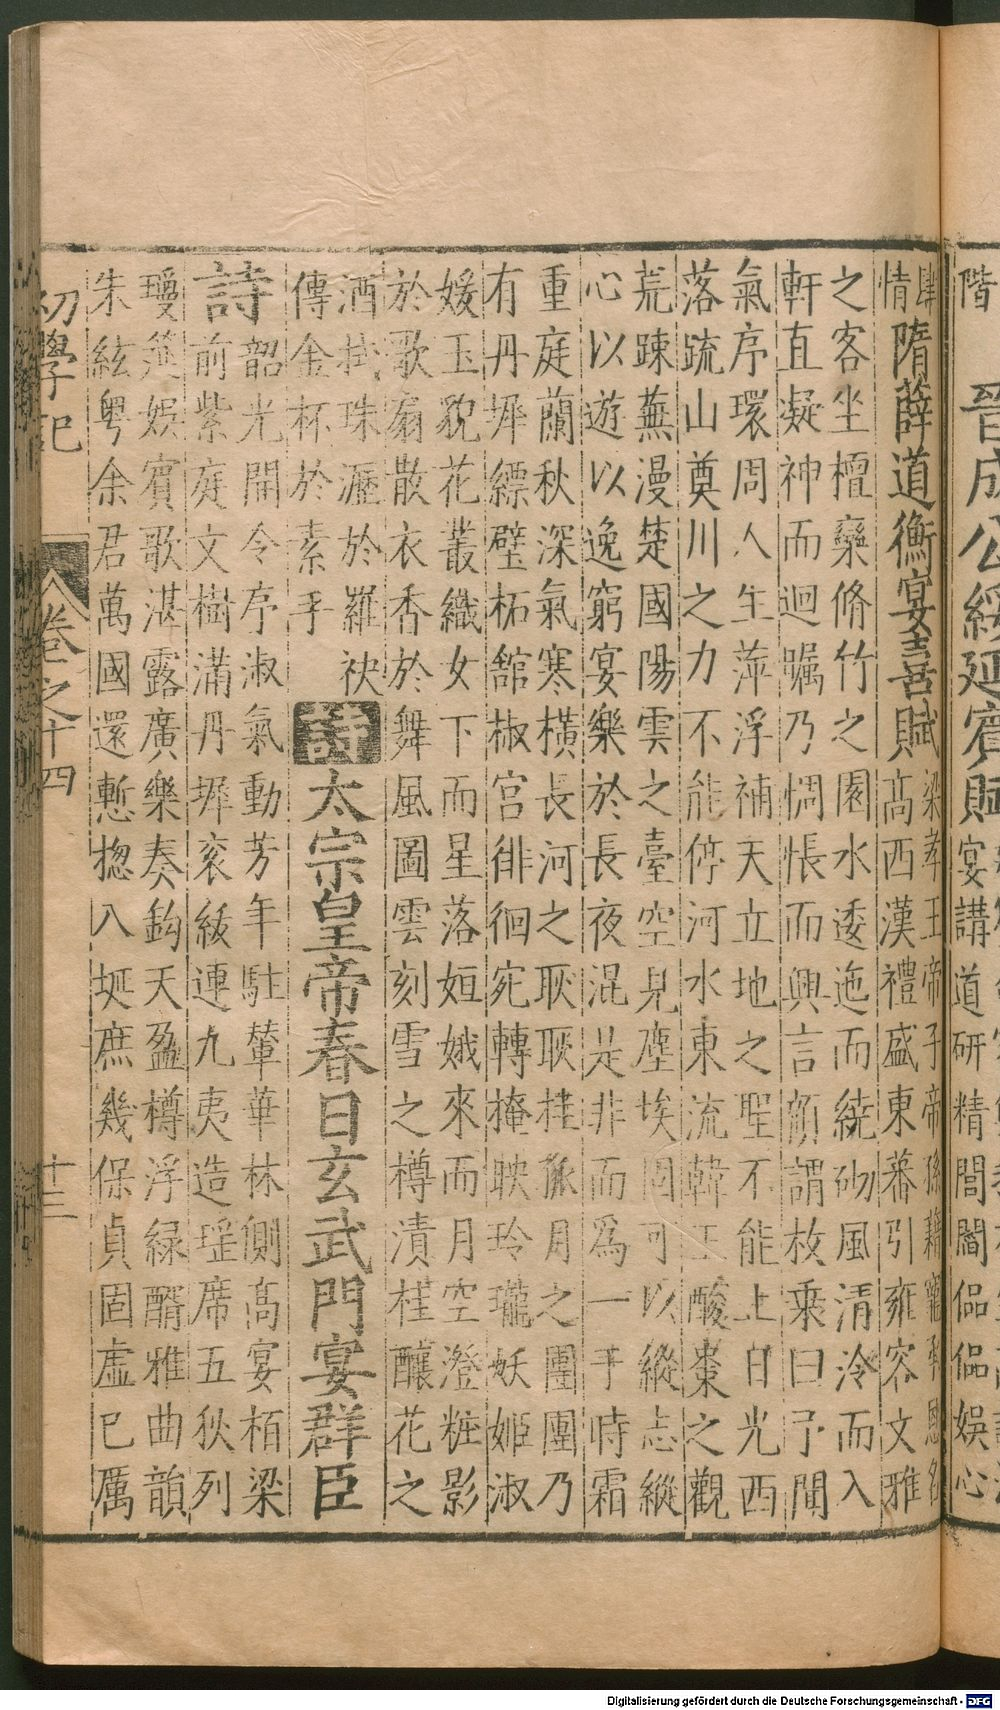 階
晉成公綏延賓賦
宴講道研精誾誾偘偘娛心
肆
情
隋薛道衡宴喜賦
梁孝王帝子帝孫藉寵承恩名
高西漢禮盛東蕃引雍容文雅
之客坐檀欒脩竹之園水逶迤而繞砌風清泠而入
軒直凝神而迴矚乃惆悵而興言顧謂枚乘曰予聞
氣序環周人生萍浮補天立地之聖不能上日光西
落疏山奠川之力不能停河水東流韓王酸棗之觀
荒踈蕪漫楚國陽雲之臺空見塵埃固可以縱志縱
心以遊以逸窮宴樂於長夜混是非而爲一于時霜
重庭蘭秋深氣寒橫長河之耿耿挂孤月之團團乃
有丹墀縹璧柘舘椒宮徘徊宛轉掩映玲瓏妖姬淑
媛玉貌花叢織女下而星落姮娥來而月空澄粧影
於歌扇散衣香於舞風圖雲刻雪之樽漬桂釀花之
酒拭珠瀝於羅袂
傳金杯於素手
詩 太宗皇帝春日玄武門宴群臣
詩
韶光開令序淑氣動芳年駐輦華林側高宴栢梁
前紫庭文樹滿丹墀衮紱連九夷造瑤席五狄列
瓊筵娛賓歌湛露廣樂奏鈞天盈樽浮綠醑雅曲韻
朱絃粤余君萬國還慙揔八埏庶幾保貞固虛已厲
初學記 卷之十四 十三
Digitalisierung gefördert durch die Deutsche Forschungsgemeinschaft - DFG